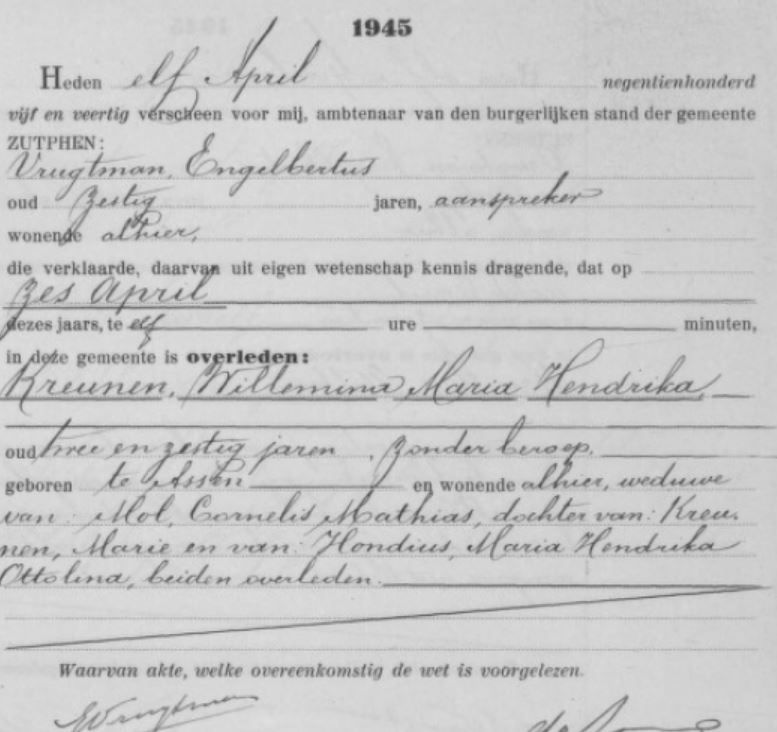 1945
Heden elf April negentienhonderd
vijf en veertig verscheen voor mij, ambtenaar van den burgerlijken stand der gemeente
ZUTPHEN:
Vrugtman, Engelbertus
oud zestig jaren, aanspreker
wonende alhier,
die verklaarde, daarvan uit eigen wetenschap kennis dragende, dat op
zes April
dezes jaars, te elf ure minuten,
in deze gemeente is overleden:
Kreunen, Willemina Maria Hendrika,
oud twee en zestig jaren, zonder beroep,
geboren te Assen en wonende alhier, weduwe
van: Mol, Cornelis Mathias, dochter van: Kreu-
nen, Marie en van: Hondius, Maria Hendrika
Ottolina, beiden overleden.
Waarvan akte, welke overeenkomstig de wet is voorgelezen.
EVrugtman